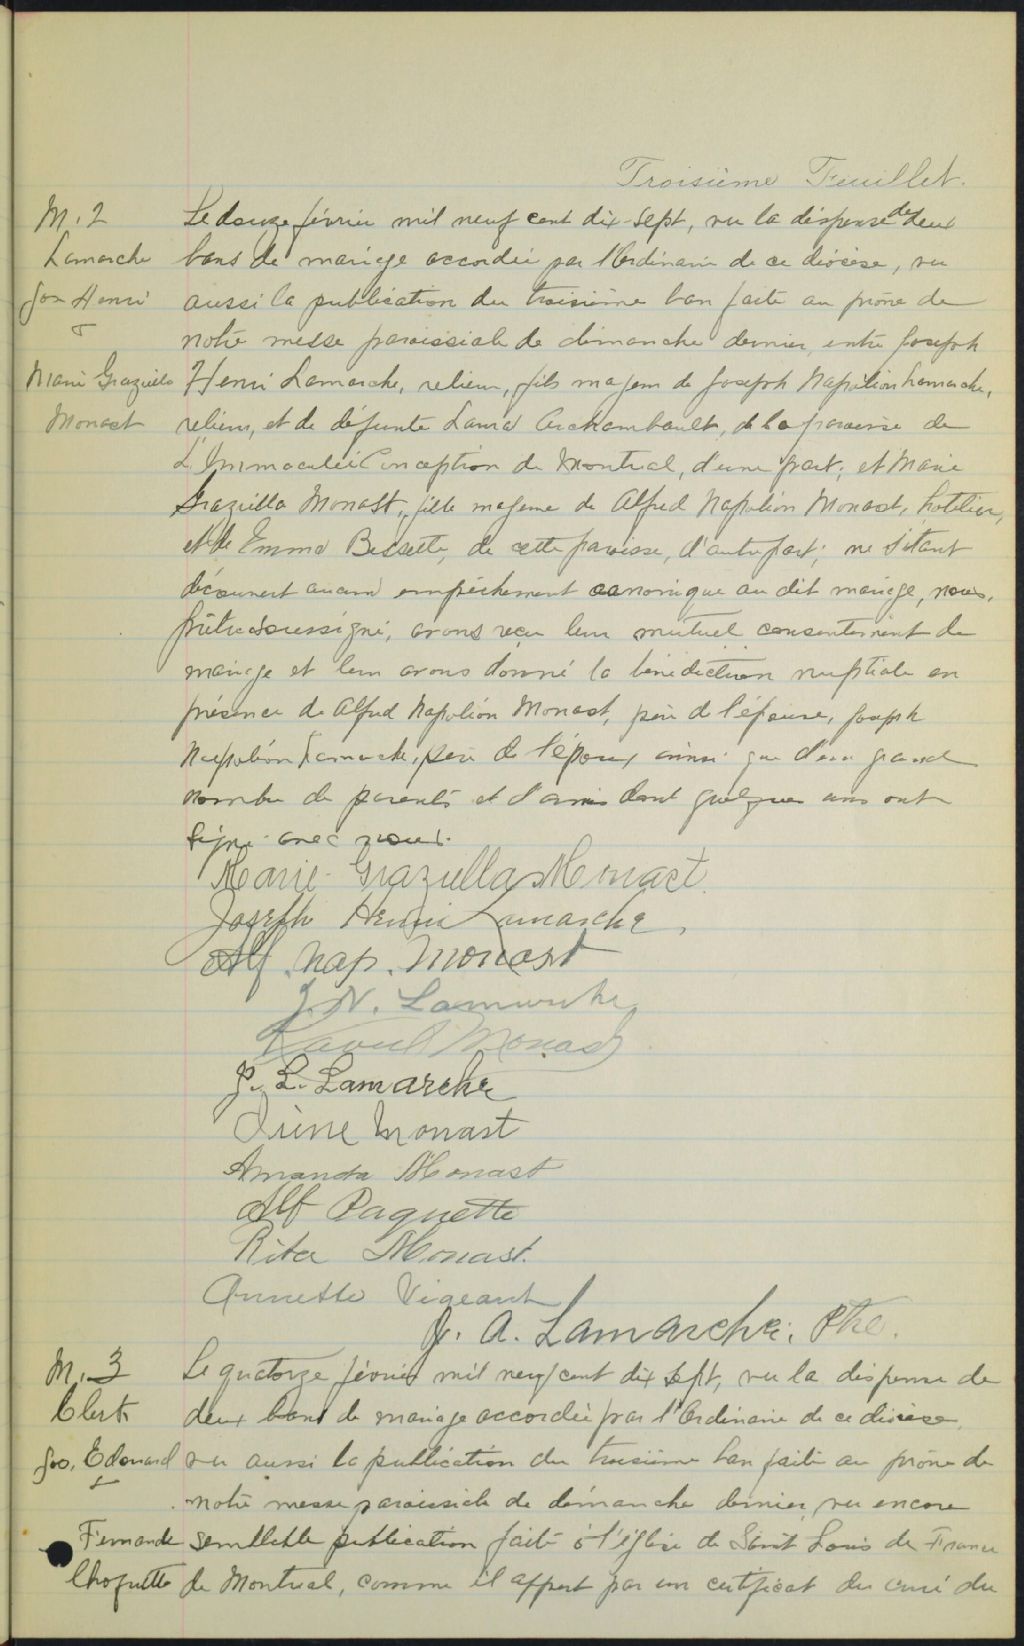 Troisième Feuillet.
M. 2
Lamarche
Jos Henri
&
Marie Graziella
Monast
Le douze février mil neuf cent dix-sept, vu la dispense de deux
bans de mariage accordée par l'Ordinaire de ce diocèse, vu
aussi la publication du troisième ban faite au prône de
notre messe paroissiale de dimanche dernier, entre Joseph
Henri Lamarche, relieur, fils majeur de Joseph Napoléon Lamarche,
relieur, et de défunte Laura Archambault, de la paroisse de
L'Immaculée Conception de Montréal, d'une part; et Marie
Graziella Monast, fille majeure de Alfred Napoléon Monast, hôtelier,
et de Emma Bessette, de cette paroisse, d'autre part; ne s'étant
découvert aucun empêchement canonique au dit mariage, nous,
prêtre soussigné, avons reçu leur mutuel consentement de
mariage et leur avons donné la bénédiction nuptiale en
présence de Alfred Napoléon Monast, père de l'épouse, Joseph
Napoléon Lamarche, père de l'époux ainsi que d'un grand
nombre de parents et d'amis dont quelques uns ont
signé avec nous.
Marie-Graziella Monast
Joseph Henri Lamarche,
Alf. Nap. Monast
J. N. Lamarche
Raoul Monast
J. L. Lamarche
Irène Monast
Amanda Monast
Alf Paquette
Rita Monast.
Annette Vigeant
J. A. Lamarche, Ptre.
M. 3
Clert
Jos. Edouard
&
Fernande
Choquette
Le quatorze février mil neuf cent dix sept, vu la dispense de
deux bans de mariage accordée par l'Ordinaire de ce diocèse,
vu aussi la publication du troisième ban faite au prône de
notre messe paroissiale de dimanche dernier, vu encore
semblable publication faite à l'église de Saint Louis de France
de Montréal, comme il appert par un certificat du curé du